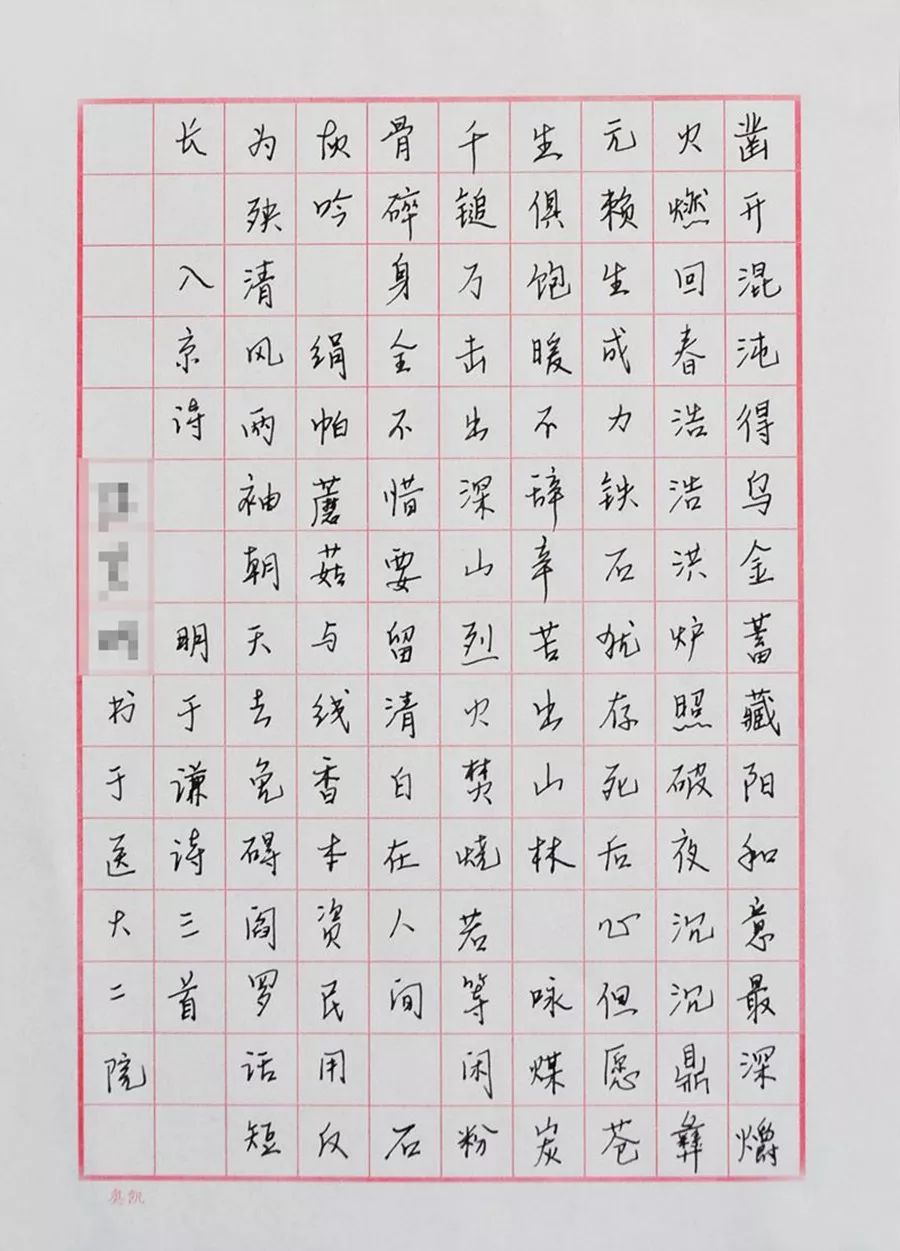 凿开混沌得乌金蓄藏阳和意最深爝
火燃回春浩浩洪炉照破夜沉沉鼎彝
元赖生成力铁石犹存死后心但愿苍
生俱饱暖不辞辛苦出山林 咏煤炭
千锤万击出深山烈火焚烧若等闲粉
骨碎身全不惜要留清白在人间 石
灰吟 绢帕蘑菇与线香本资民用反
为殃清风两袖朝天去免碍阎罗话短
长 入京诗 明于谦诗三首
书于医大二院
奥凯